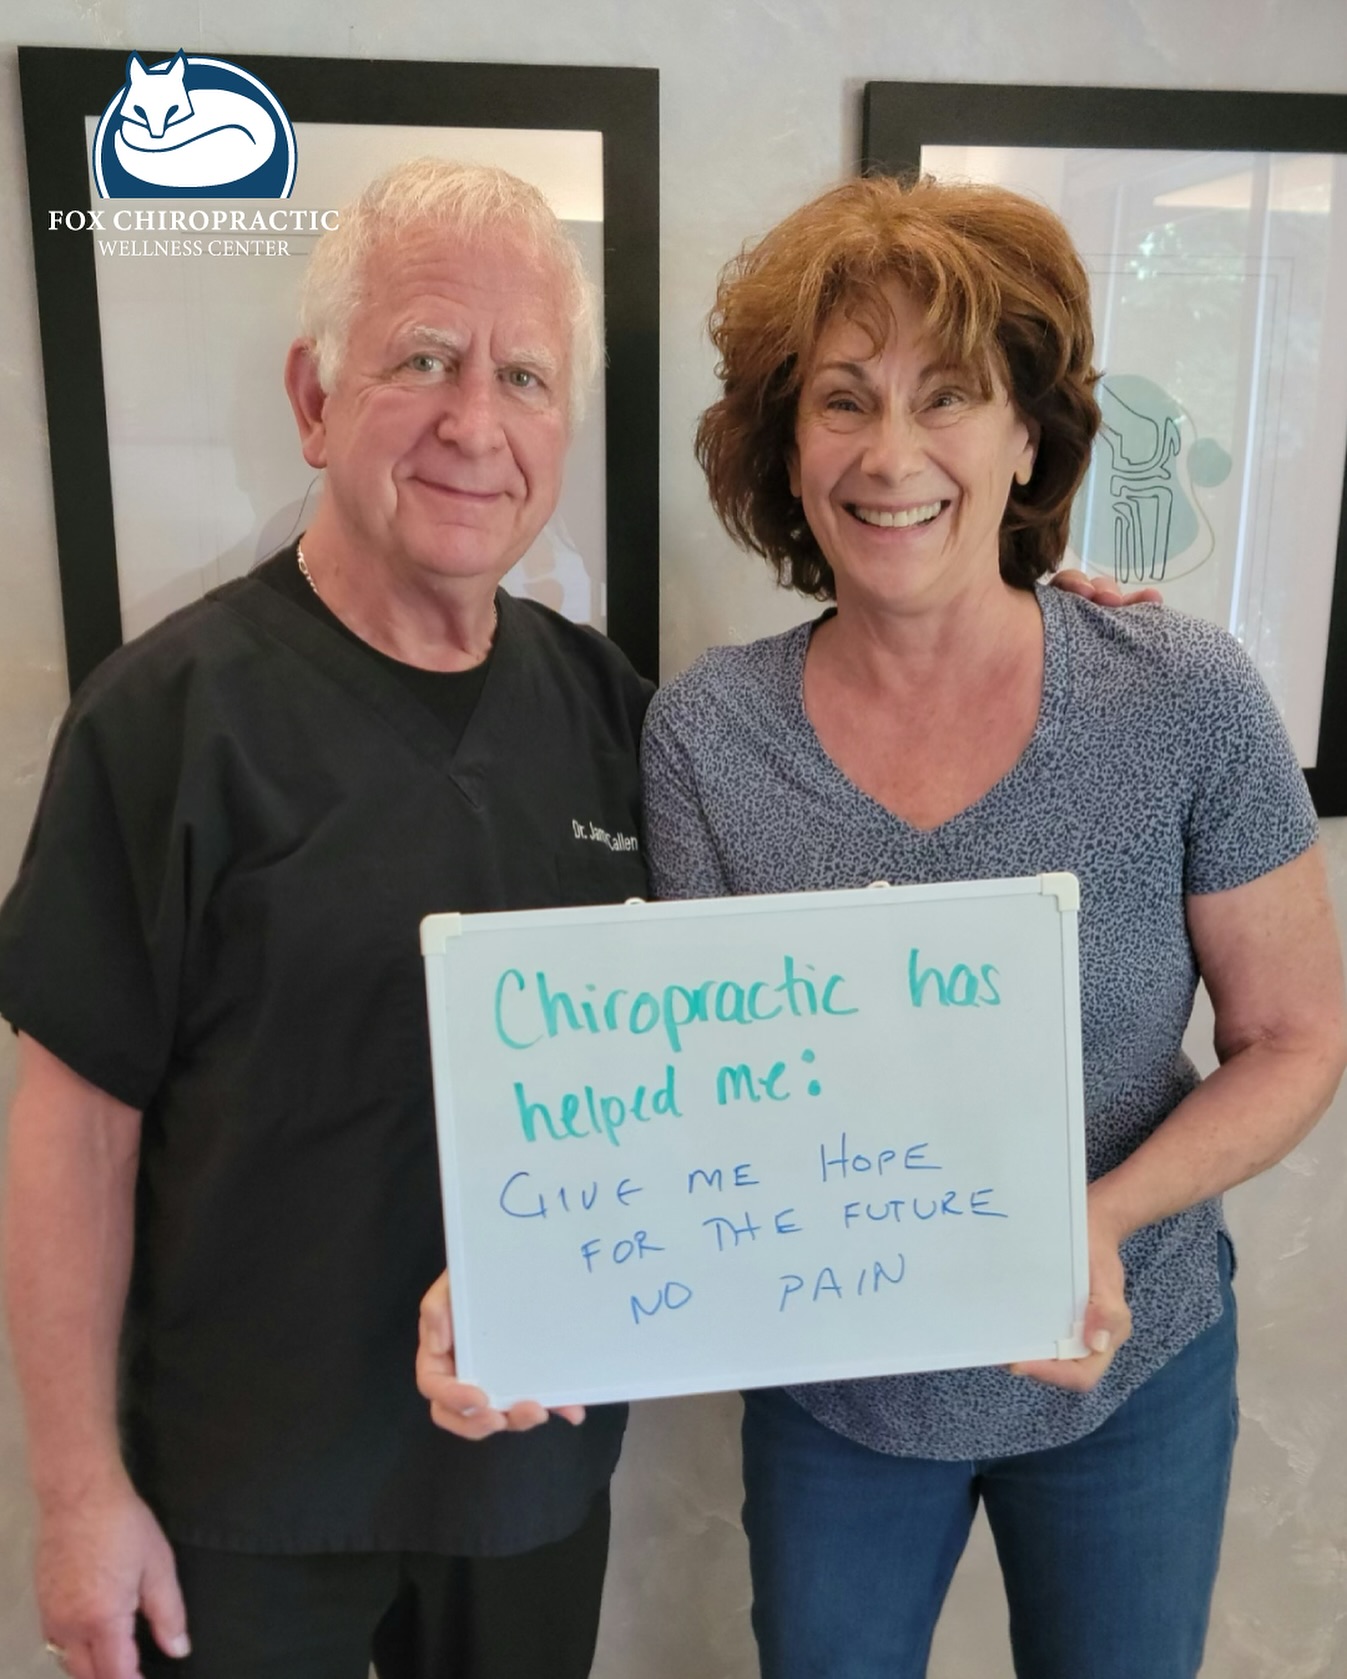 FOX CHIROPRACTIC
WELLNESS CENTER
Dr. Callen
Chiropractic has
helped me:
GIVE ME HOPE
FOR THE FUTURE
NO PAIN